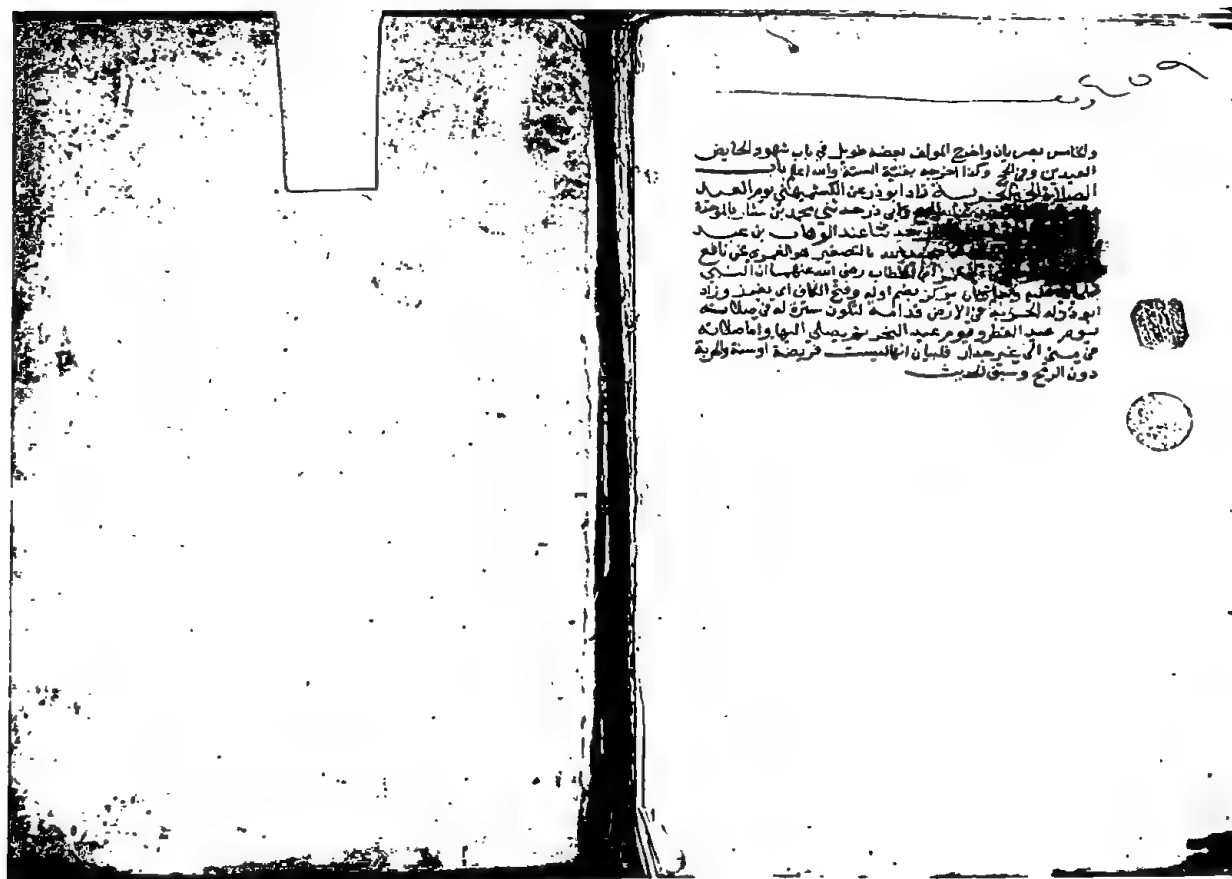 والخامس بصريان واخرج المولف بعضه طويل في باب شهود الحايض
العيدين وفي الحج وكذا اخرجه بقية الستة والله اعلم باب
الصلاة الى الحربة زاد ابو ذر عن الكشميهني يوم العيد
وابي ذر حدثني محمد بن بشار بالموحدة
عبد الوهاب بن عبد
بالتصغير هو العمري عن نافع
الخطاب رضي الله عنهما ان النبي
عليه وسلم كان تركز بضم اوله وفتح الكاف اي تغرز وزاد
ابو ذر له الحربة في الارض قدامه لتكون سترة له في صلاته
يوم عيد الفطر ويوم عيد النحر ثم يصلي اليها واما صلاته
في منى الى غير جدار فلبيان انها ليست فريضة او سنة والحربة
دون الرمح وسبق الحديث